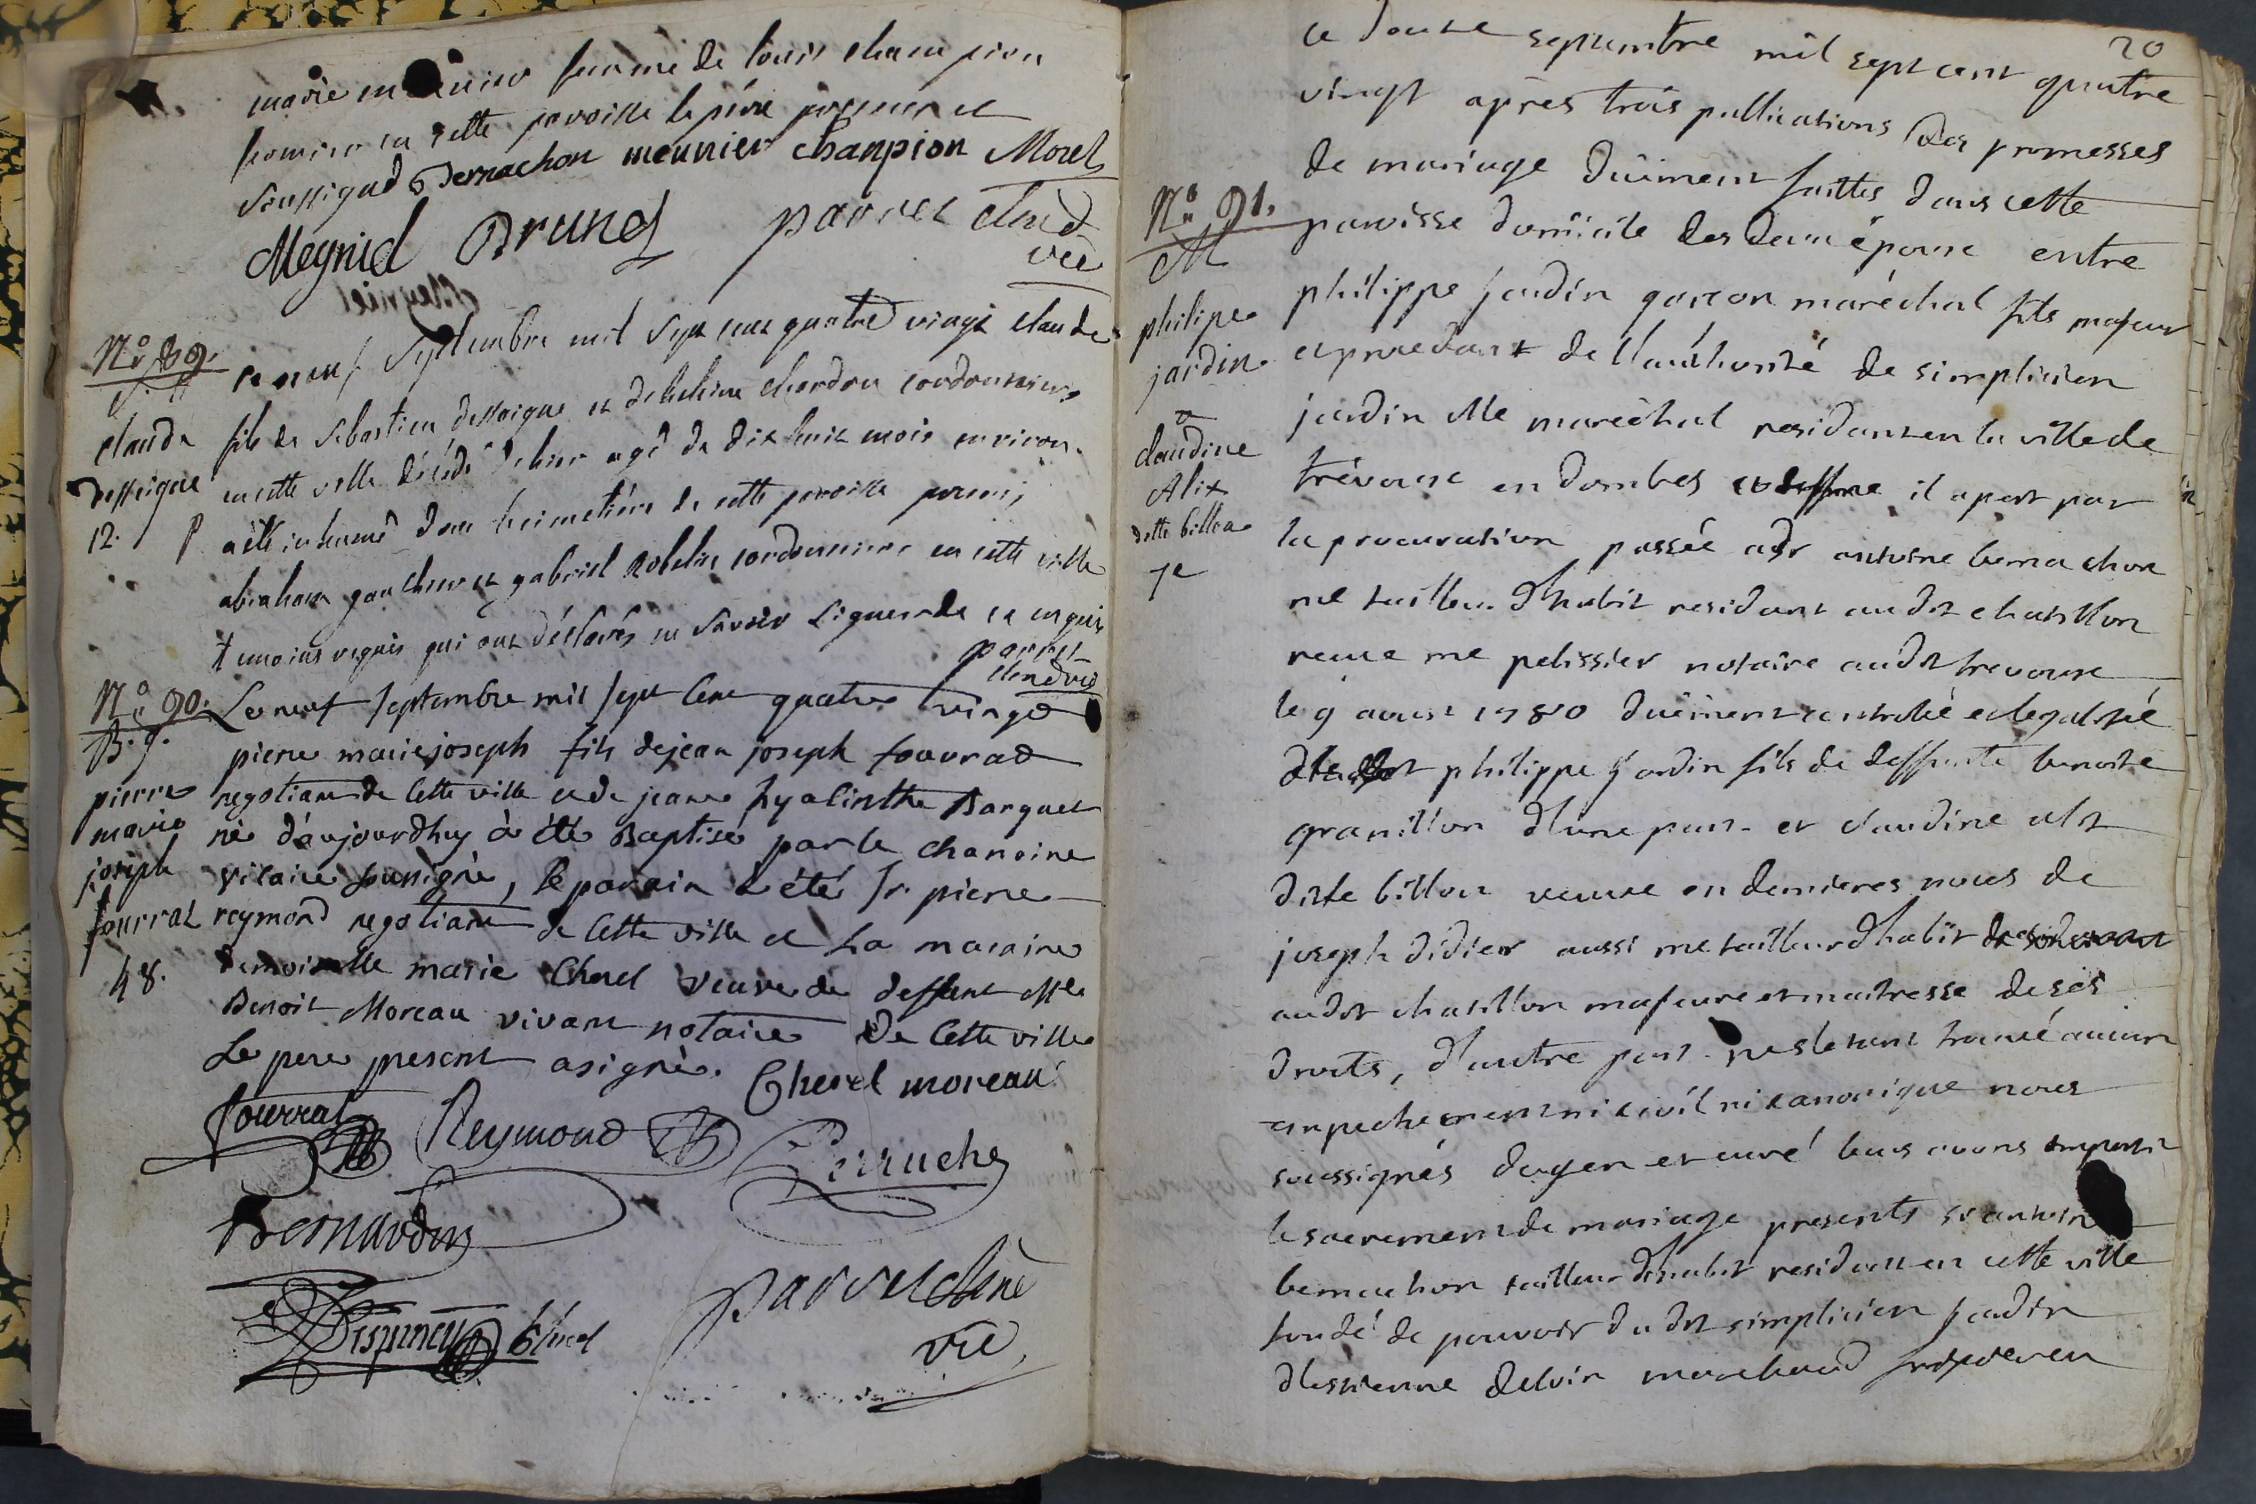 marie meunier femme de louis champion
fermier en cette paroisse le père present et
soussigné Bernachon meunier Chanpion Morel
Meyniel Brunet parrel chne
vic
No 89.
ce neuf Septembre mil sept cent quatre vingt claude
claude
desseigne
12.
fils de sébastien desseigne et chardon cordonnier
en cette ville décédé d'hier agé de dix huit mois environ
a été inhumé dans le cimetière de cette paroisse presens
abraham gaucher et gabriel robelin cordonniers en cette ville
temoins requis qui ont déclarés ne savoir signer de ce enquis
parrel
chne vic
No 90.
B. g.
pierre
marie
joseph
fourrat
48.
Le neuf septembre mil sept Cent quatre vingt
pierre marie joseph fils de jean joseph fourrat
negotiant de Cette ville et de jeanne hyacinthe Barquet
né d'aujourdhuy à été Baptisé par le chanoine
vicaire sousigné, le parain à été sr. pierre
reymond negotiant de Cette ville et La maraine
demoiselle marie Cherel veuve de deffunt Me
Benoit Moreau vivant notaire De Cette ville
Le pere present a signé. Cherel moreau
fourrat Reymond Perruche
Bernardin
parrel chne
vic
20
No 91.
M
philipe
jardin
&
claudine
Alix
ditte billon
7e
ce douze septembre mil sept cent quatre
vingt après trois publications des promesses
de mariage dûiment faittes dans cette
paroisse domicile des deux époux entre
philippe jardin garçon maréchal fils majeur
et procedant de l'authorité de simplicien
jardin Me maréchal residant en la ville de
trévoux en dombes il apert par
la procuration passée a sr antoine bernachon
me tailleur d'habit residant audit chatillon
reçue me pelissier notaire audit trevoux
le 9 aoust 1780 dûiment controllé et legalisé
philippe jardin fils de deffunte benoite
granillon d'une part et claudine alix
ditte billon veuve en dernieres noces de
joseph didier aussi me tailleur d'habit
audit chatillon majeure et maitresse de ses
droits, d'autre part. ne s'etant trouvé aucun
enpechement ni civil ni canonique nous
soussignés doyen et curé leurs avons imparti
le sacrement de mariage presents sr antoine
bernachon tailleur d'habit residant en cette ville
fondé de pouvoir dudit simplicien jardin
d'estienne deloin marchand fripier en